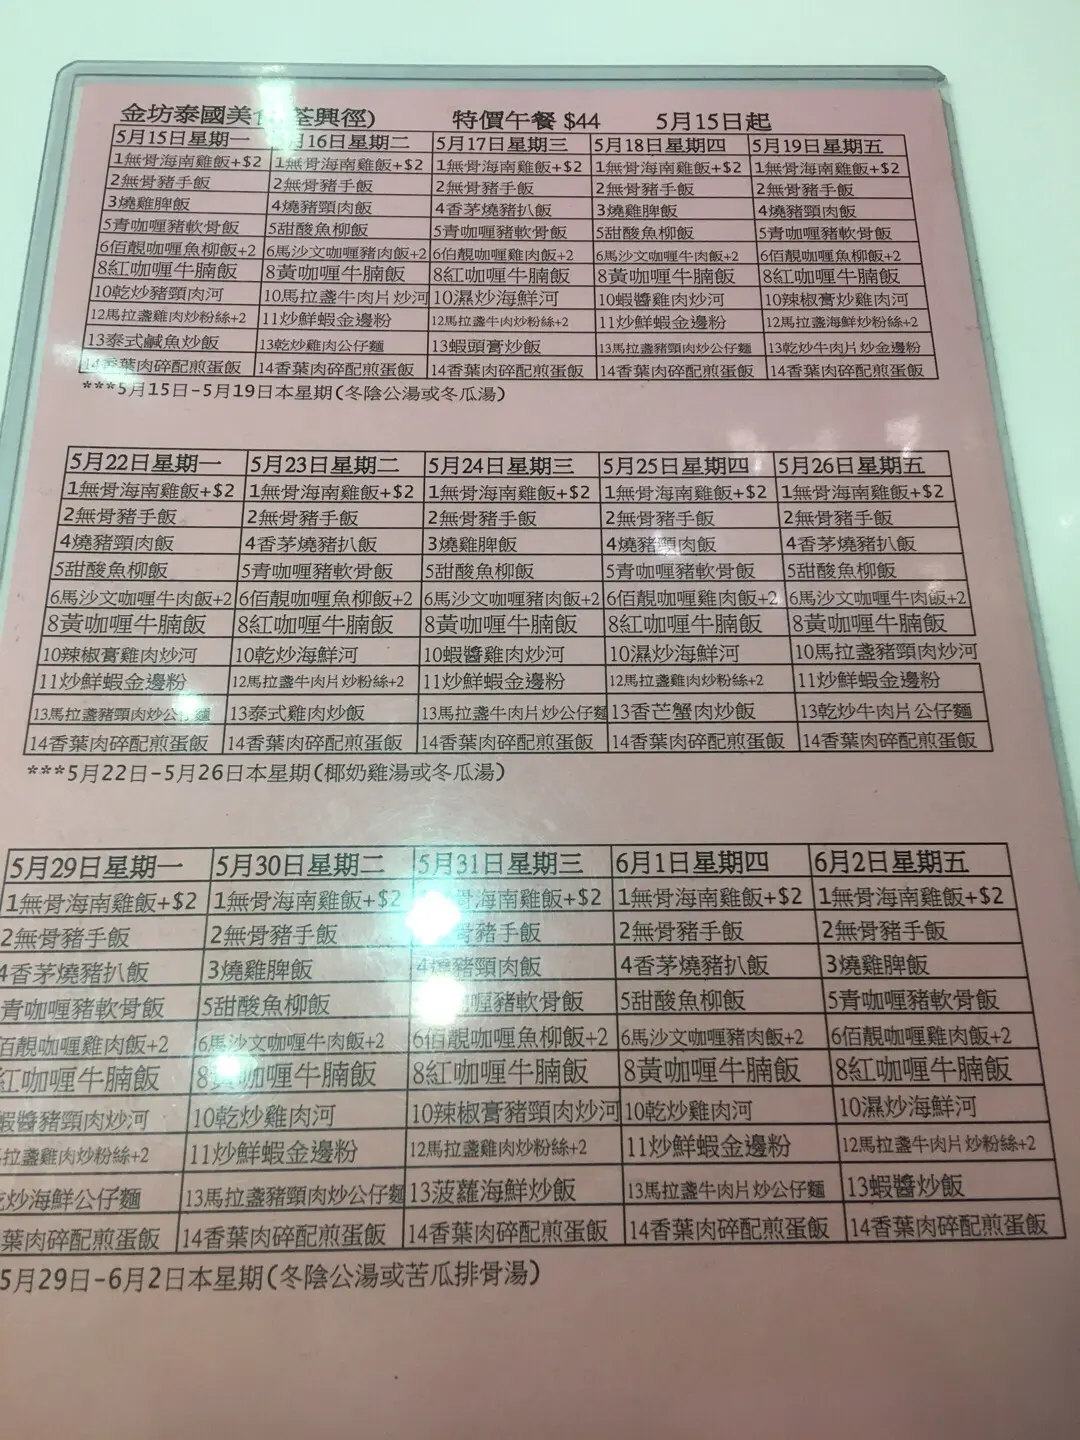 金坊泰國美食 荃興徑) 特價午餐 $44 5月15日起
5月15日星期一 月16日星期二 5月17日星期三 5月18日星期四 5月19日星期五
1無骨海南雞飯+$2 1無骨海南雞飯+$2 1無骨海南雞飯+$2 1無骨海南雞飯+$2 1無骨海南雞飯+$2
2無骨豬手飯 2無骨豬手飯 2無骨豬手飯 2無骨豬手飯 2無骨豬手飯
3燒雞脾飯 4燒豬頸肉飯 4香茅燒豬扒飯 3燒雞脾飯 4燒豬頸肉飯
5青咖喱豬軟骨飯 5甜酸魚柳飯 5青咖喱豬軟骨飯 5甜酸魚柳飯 5青咖喱豬軟骨飯
6佰靚咖喱魚柳飯+2 6馬沙文咖喱豬肉飯+2 6佰靚咖喱雞肉飯+2 6馬沙文咖喱牛肉飯+2 6佰靚咖喱魚柳飯+2
8紅咖喱牛腩飯 8黃咖喱牛腩飯 8紅咖喱牛腩飯 8黃咖喱牛腩飯 8紅咖喱牛腩飯
10乾炒豬頸肉河 10馬拉盞牛肉片炒河 10濕炒海鮮河 10蝦醬雞肉炒河 10辣椒膏炒雞肉河
12馬拉盞雞肉炒粉絲+2 11炒鮮蝦金邊粉 12馬拉盞牛肉炒粉絲+2 11炒鮮蝦金邊粉 12馬拉盞海鮮炒粉絲+2
13泰式鹹魚炒飯 13乾炒雞肉公仔麵 13蝦頭膏炒飯 13馬拉盞豬頸肉炒公仔麵 13乾炒牛肉片炒金邊粉
14香葉肉碎配煎蛋飯 14香葉肉碎配煎蛋飯 14香葉肉碎配煎蛋飯 14香葉肉碎配煎蛋飯 14香葉肉碎配煎蛋飯
***5月15日-5月19日本星期(冬陰公湯或冬瓜湯)
5月22日星期一 5月23日星期二 5月24日星期三 5月25日星期四 5月26日星期五
1無骨海南雞飯+$2 1無骨海南雞飯+$2 1無骨海南雞飯+$2 1無骨海南雞飯+$2 1無骨海南雞飯+$2
2無骨豬手飯 2無骨豬手飯 2無骨豬手飯 2無骨豬手飯 2無骨豬手飯
4燒豬頸肉飯 4香茅燒豬扒飯 3燒雞脾飯 4燒豬頸肉飯 4香茅燒豬扒飯
5甜酸魚柳飯 5青咖喱豬軟骨飯 5甜酸魚柳飯 5青咖喱豬軟骨飯 5甜酸魚柳飯
6馬沙文咖喱牛肉飯+2 6佰靚咖喱魚柳飯+2 6馬沙文咖喱豬肉飯+2 6佰靚咖喱雞肉飯+2 6馬沙文咖喱牛肉飯+2
8黃咖喱牛腩飯 8紅咖喱牛腩飯 8黃咖喱牛腩飯 8紅咖喱牛腩飯 8黃咖喱牛腩飯
10辣椒膏雞肉炒河 10乾炒海鮮河 10蝦醬雞肉炒河 10濕炒海鮮河 10馬拉盞豬頸肉炒河
11炒鮮蝦金邊粉 12馬拉盞牛肉片炒粉絲+2 11炒鮮蝦金邊粉 12馬拉盞雞肉炒粉絲+2 11炒鮮蝦金邊粉
13馬拉盞豬頸肉炒公仔麵 13泰式雞肉炒飯 13馬拉盞牛肉片炒公仔麵 13香芒蟹肉炒飯 13乾炒牛肉片公仔麵
14香葉肉碎配煎蛋飯 14香葉肉碎配煎蛋飯 14香葉肉碎配煎蛋飯 14香葉肉碎配煎蛋飯 14香葉肉碎配煎蛋飯
***5月22日-5月26日本星期(椰奶雞湯或冬瓜湯)
5月29日星期一 5月30日星期二 5月31日星期三 6月1日星期四 6月2日星期五
1無骨海南雞飯+$2 1無骨海南雞飯+$2 骨海南雞飯+$2 1無骨海南雞飯+$2 1無骨海南雞飯+$2
2無骨豬手飯 2無骨豬手飯 骨豬手飯 2無骨豬手飯 2無骨豬手飯
4香茅燒豬扒飯 3燒雞脾飯 4燒豬頸肉飯 4香茅燒豬扒飯 3燒雞脾飯
青咖喱豬軟骨飯 5甜酸魚柳飯 咖喱豬軟骨飯 5甜酸魚柳飯 5青咖喱豬軟骨飯
佰靚咖喱雞肉飯+2 6馬沙文咖喱牛肉飯+2 6佰靚咖喱魚柳飯+2 6馬沙文咖喱豬肉飯+2 6佰靚咖喱雞肉飯+2
紅咖喱牛腩飯 8黃咖喱牛腩飯 8紅咖喱牛腩飯 8黃咖喱牛腩飯 8紅咖喱牛腩飯
蝦醬豬頸肉炒河 10乾炒雞肉河 10辣椒膏豬頸肉炒河 10乾炒雞肉河 10濕炒海鮮河
拉盞雞肉炒粉絲+2 11炒鮮蝦金邊粉 12馬拉盞雞肉炒粉絲+2 11炒鮮蝦金邊粉 12馬拉盞牛肉片炒粉絲+2
乾炒海鮮公仔麵 13馬拉盞豬頸肉炒公仔麵 13菠蘿海鮮炒飯 13馬拉盞牛肉片炒公仔麵 13蝦醬炒飯
葉肉碎配煎蛋飯 14香葉肉碎配煎蛋飯 14香葉肉碎配煎蛋飯 14香葉肉碎配煎蛋飯 14香葉肉碎配煎蛋飯
5月29日-6月2日本星期(冬陰公湯或苦瓜排骨湯)